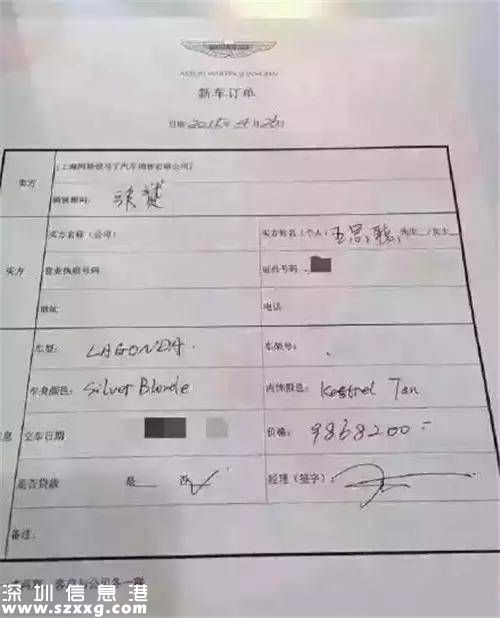 ASTON MARTIN SHANGHAI
新车订单
日期 2015年4月26日
卖方
销售顾问:
买方
买方名称(公司)
买方姓名(个人) 王思聪 先生 / 女士
营业执照号码
证件号码
地址
电话
车型: LAGONDA
车架号:
车身颜色: Silver Blonde
内饰颜色: Kestrel Tan
息 交车日期
价格: 9868200-
是否贷款 是 否 ✓
经理(签字)
备注:
客户与公司各一联
深圳信息港
www.szxxg.com